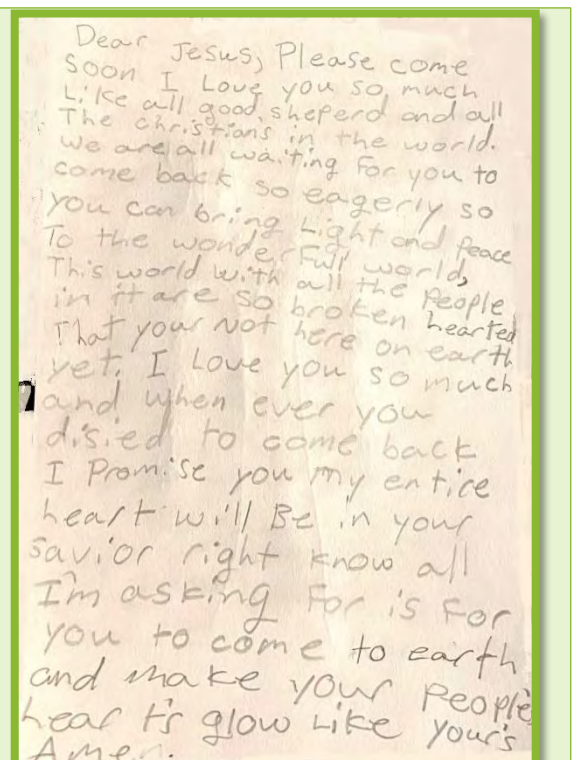 Dear Jesus, Please come
Soon I Love you so much
Like all good sheperd and all
The christians in the world.
we are all waiting for you to
come back so eagerly so
you can bring Light and Peace
To the wonderfull world,
This world with all the People
in it are so broken hearted
That your not here on earth
yet. I Love you so much
and when ever you
disied to come back
I Promise you my entire
heart will Be in your
savior right know all
I'm asking For is For
you to come to earth
and make your People
hearts glow Like your's
Amen.